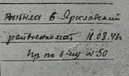 Выбыла в Ярославский
райвоенкомат 18.08.41г
Пр по б-цу № 50